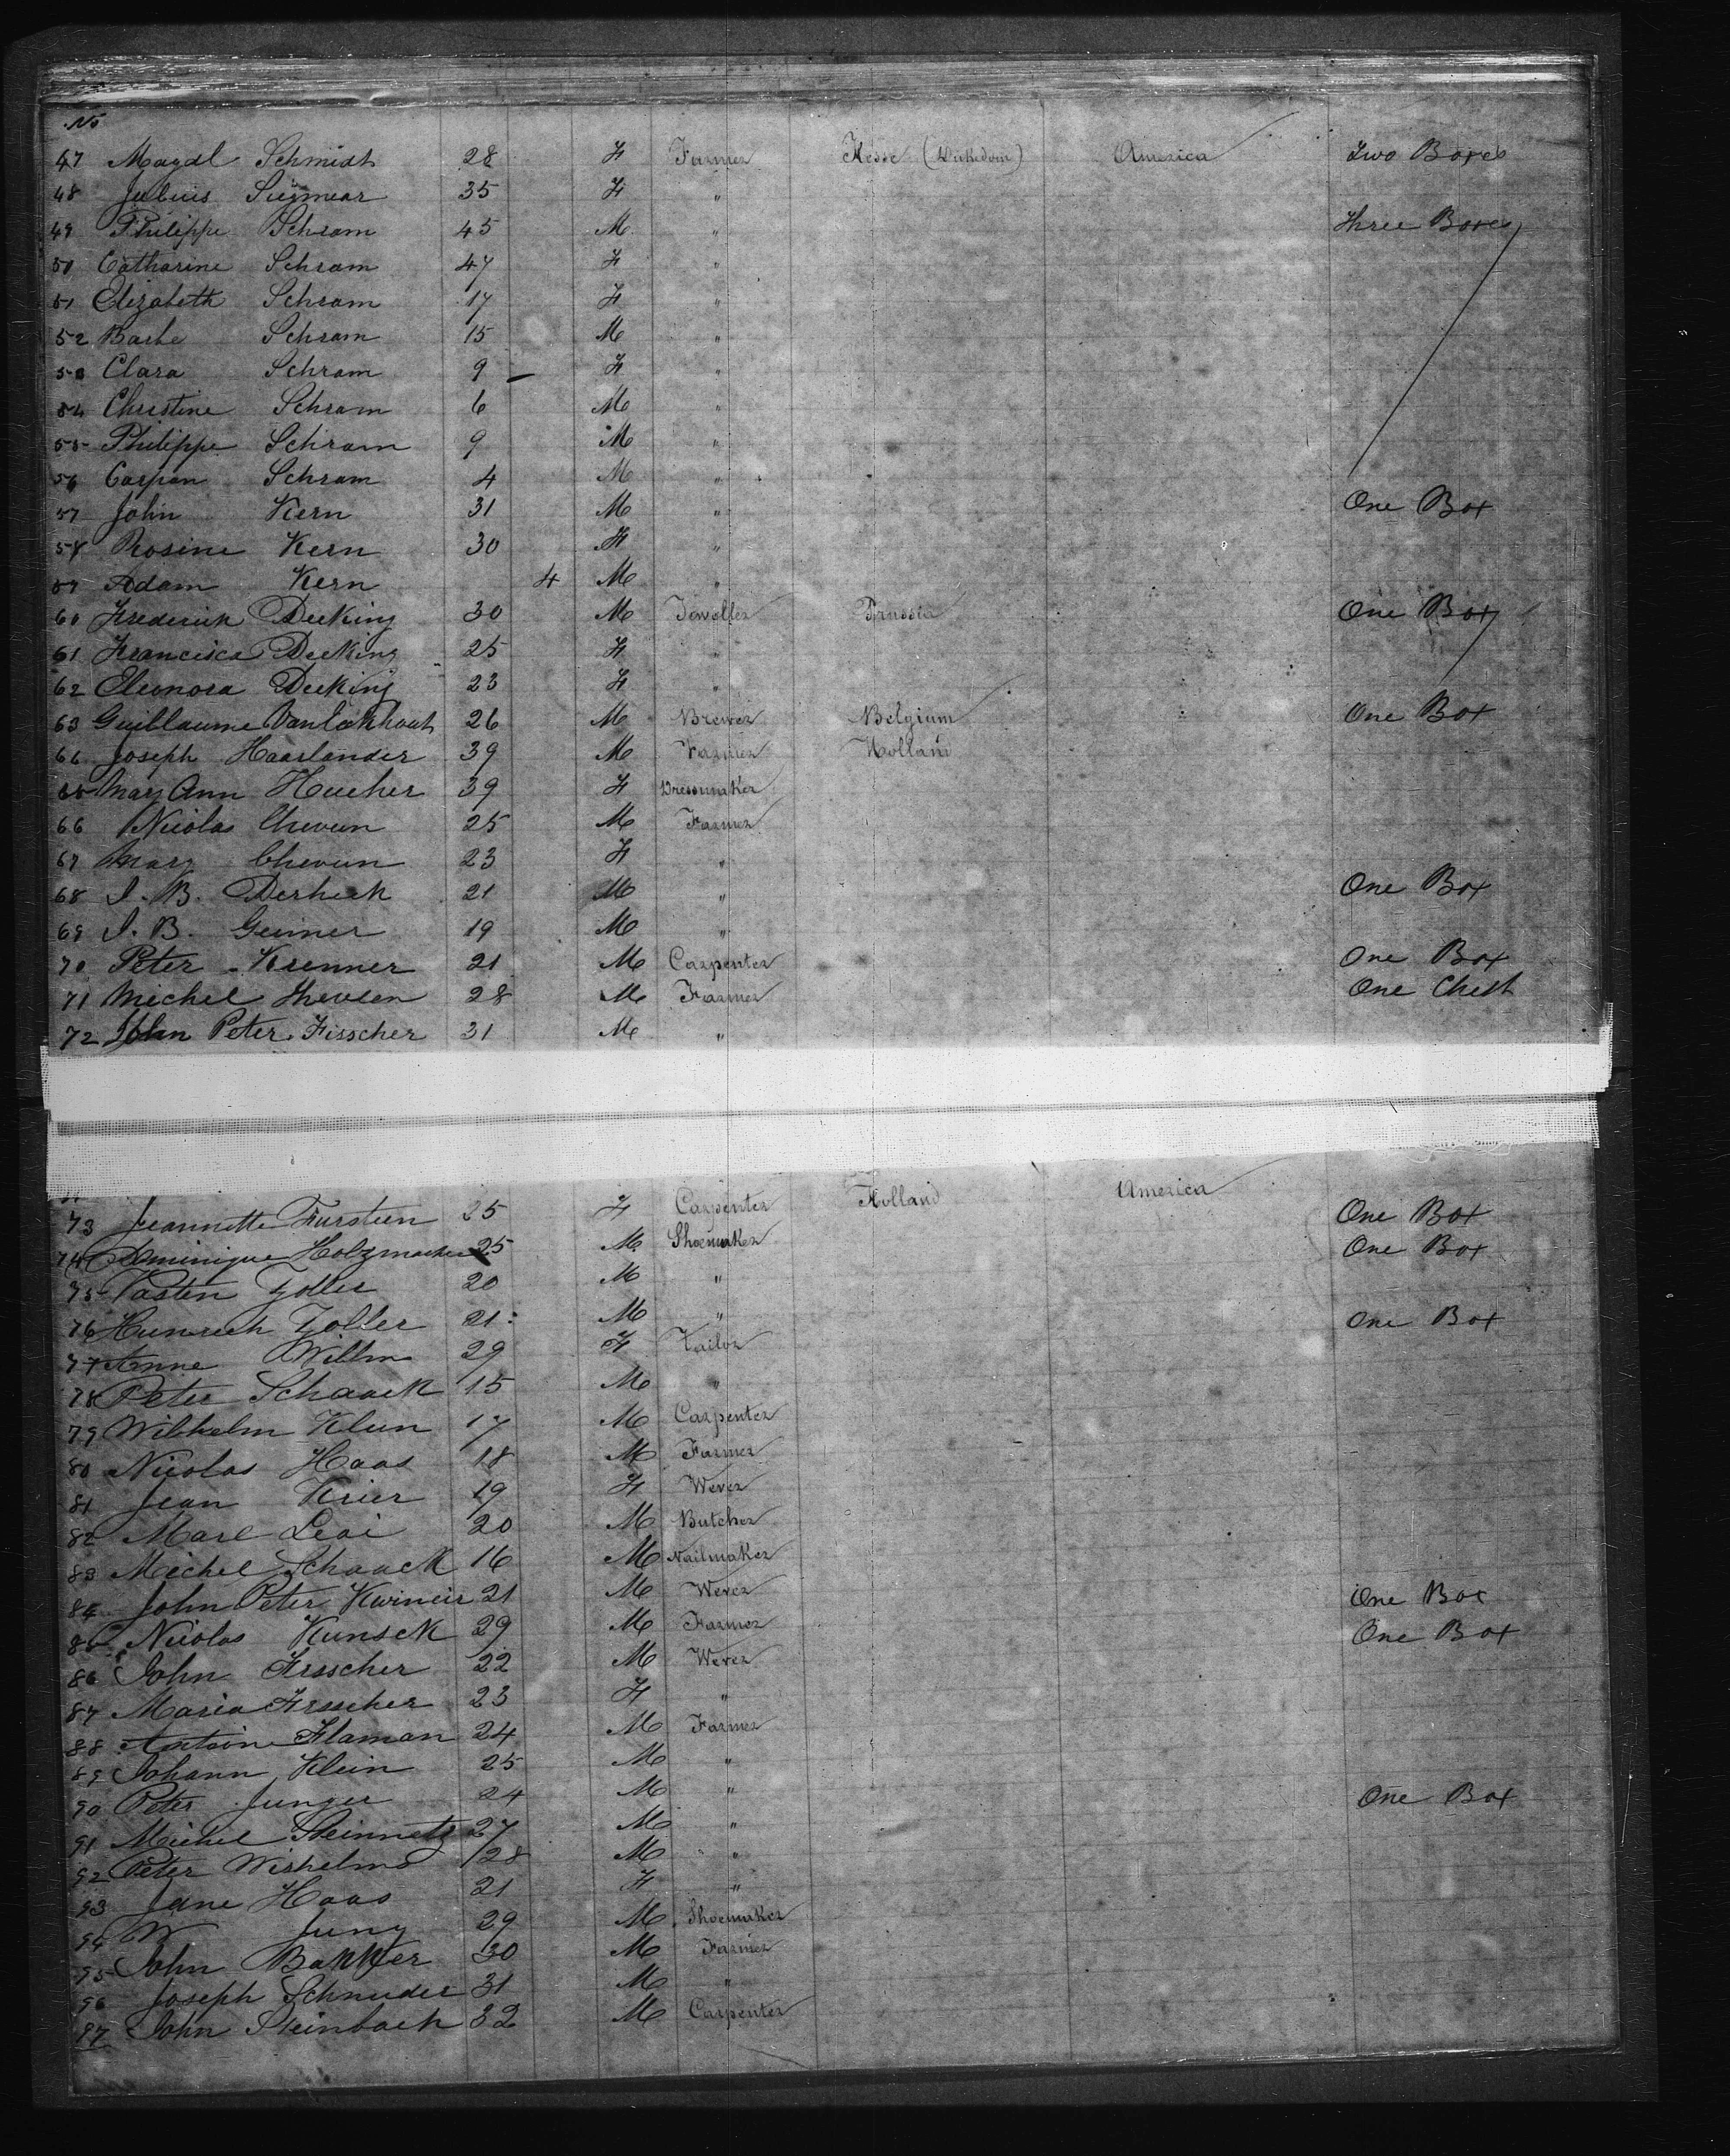 No
47 Magdl Schmidt 28 F Farmer Hesse (Dukedom) America Two Boxes
48 Julius 35 F "
49 Philippe Schram 45 M " Three Boxes
50 Catharine Schram 47 F "
51 Elizabeth Schram 17 F "
52 Schram 15 M "
53 Clara Schram 9 F "
54 Christine Schram 6 M "
55 Philippe Schram 9 M "
56 Caspan Schram 4 M "
57 John Kern 31 M " One Box
58 Rosine Kern 30 F "
59 Adam Kern 4 M "
60 Frederick Decking 30 M Jeweller Prussia One Box
61 Francisca Decking 25 F "
62 Eleonora Decking 23 F "
63 Guillaume Vanlockhout 26 M Brewer Belgium One Box
64 Joseph Haarlander 39 M Farmer Holland
65 Mary Ann Hucher 39 F Dressmaker
66 Nicolas Chevun 25 M Farmer
67 Mary Chevun 23 F "
68 J. B. Derheck 21 M " One Box
69 J. B. Geimer 19 M "
70 Peter Krenner 21 M Carpenter One Box
71 Michel Thevsen 28 M Farmer One Chest
72 John Peter Fisscher 31 M "
73 Jeannette Fursteen 25 F Carpenter Holland America One Box
74 Dominique Holzmacher 25 M Shoemaker One Box
75 Zoller 20 M "
76 Heinrich Zoller 21 M " One Box
77 Anne Willm 29 F Tailor
78 Peter Schaack 15 M "
79 Wilhelm Klein 17 M Carpenter
80 Nicolas Haas 18 M Farmer
81 Jean Krier 19 F Wever
82 Marl Leai 20 M Butcher
83 Michel Schaack 16 M Nailmaker
84 John Peter 21 M Wever One Box
85 Nicolas Kunsck 29 M Farmer One Box
86 John Fisscher 22 M Wever
87 Maria Fisscher 23 F "
88 Antoine Flaman 24 M Farmer
89 Johann Klein 25 M "
90 Peter Junger 24 M " One Box
91 Michel Steinmetz 27 M "
92 Peter Wirhelms 28 M "
93 Jane Haas 21 F "
94 W Jung 29 M Shoemaker
95 John Bakker 30 M Farmer
96 Joseph Schneider 31 M "
97 John Steinbach 32 M Carpenter